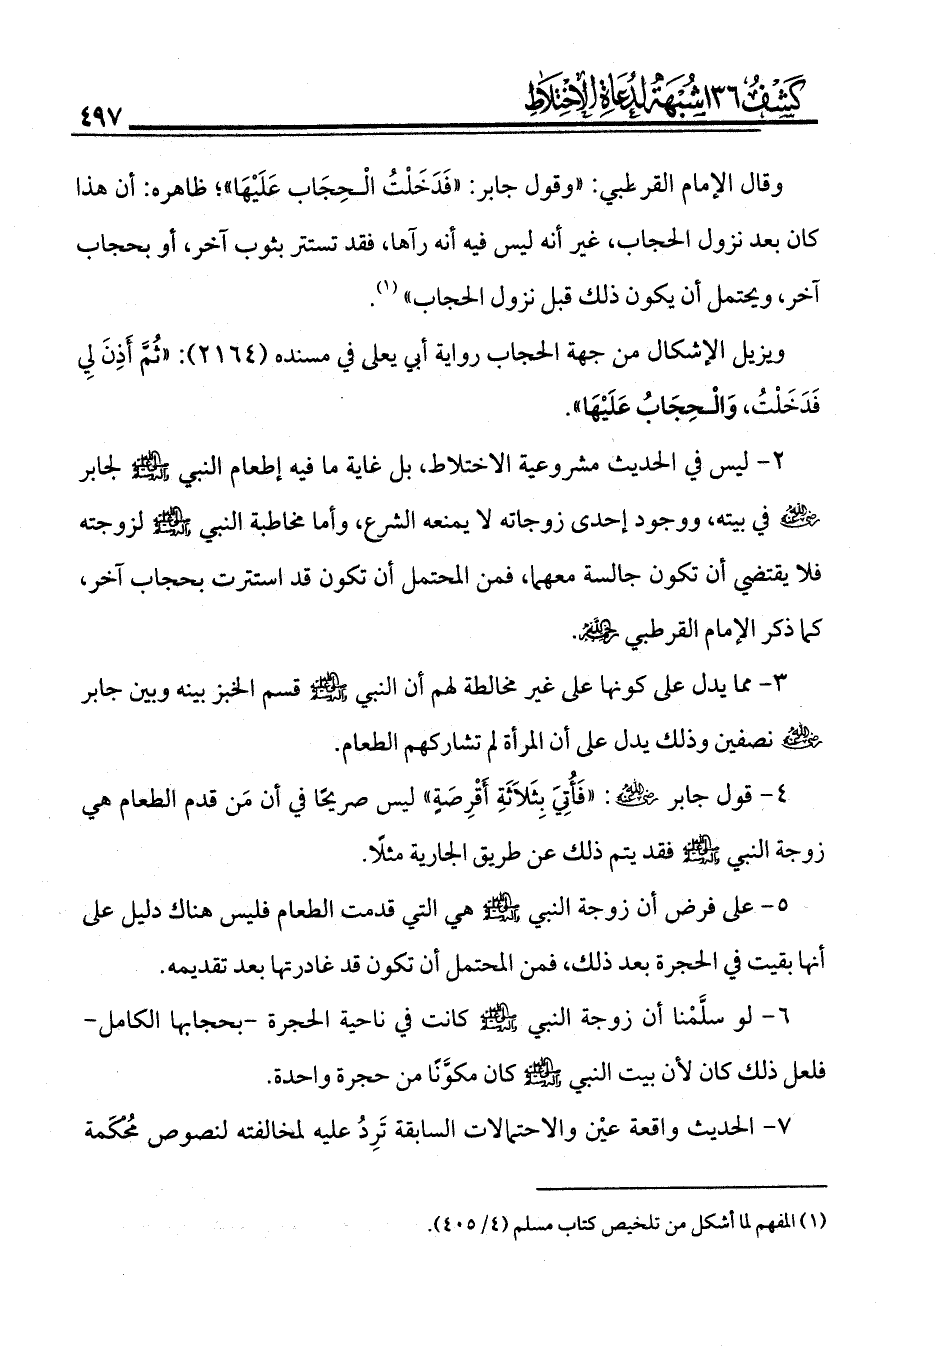 كشف ١٣٦ شبهة لدعاة الاختلاط
٤٩٧
وقال الإمام القرطبي: «وقول جابر: «فَدَخَلْتُ الْحِجَاب عَلَيْهَا»؛ ظاهره: أن هذا
كان بعد نزول الحجاب، غير أنه ليس فيه أنه رآها، فقد تستتر بثوب آخر، أو بحجاب
آخر، ويحتمل أن يكون ذلك قبل نزول الحجاب» (١).
ويزيل الإشكال من جهة الحجاب رواية أبي يعلى في مسنده (٢١٦٤): «ثُمَّ أَذِنَ لِي
فَدَخَلْتُ، وَالْحِجَابُ عَلَيْهَا».
٢- ليس في الحديث مشروعية الاختلاط، بل غاية ما فيه إطعام النبي ﷺ لجابر
رضي الله عنه في بيته، ووجود إحدى زوجاته لا يمنعه الشرع، وأما مخاطبة النبي ﷺ لزوجته
فلا يقتضي أن تكون جالسة معهما، فمن المحتمل أن تكون قد استترت بحجاب آخر،
كما ذكر الإمام القرطبي رحمه الله.
٣- مما يدل على كونها على غير مخالطة لهم أن النبي ﷺ قسم الخبز بينه وبين جابر
رضي الله عنه نصفين وذلك يدل على أن المرأة لم تشاركهم الطعام.
٤- قول جابر رضي الله عنه: «فَأُتِيَ بِثَلاَثَةِ أَقْرِصَةٍ» ليس صريحًا في أن مَن قدم الطعام هي
زوجة النبي ﷺ فقد يتم ذلك عن طريق الجارية مثلًا.
٥- على فرض أن زوجة النبي ﷺ هي التي قدمت الطعام فليس هناك دليل على
أنها بقيت في الحجرة بعد ذلك، فمن المحتمل أن تكون قد غادرتها بعد تقديمه.
٦- لو سلَّمْنا أن زوجة النبي ﷺ كانت في ناحية الحجرة -بحجابها الكامل-
فلعل ذلك كان لأن بيت النبي ﷺ كان مكوَّنًا من حجرة واحدة.
٧- الحديث واقعة عيْن والاحتمالات السابقة تَرِدُ عليه لمخالفته لنصوص مُحْكَمة
(١) المفهم لما أشكل من تلخيص كتاب مسلم (٤/ ٤٠٥).